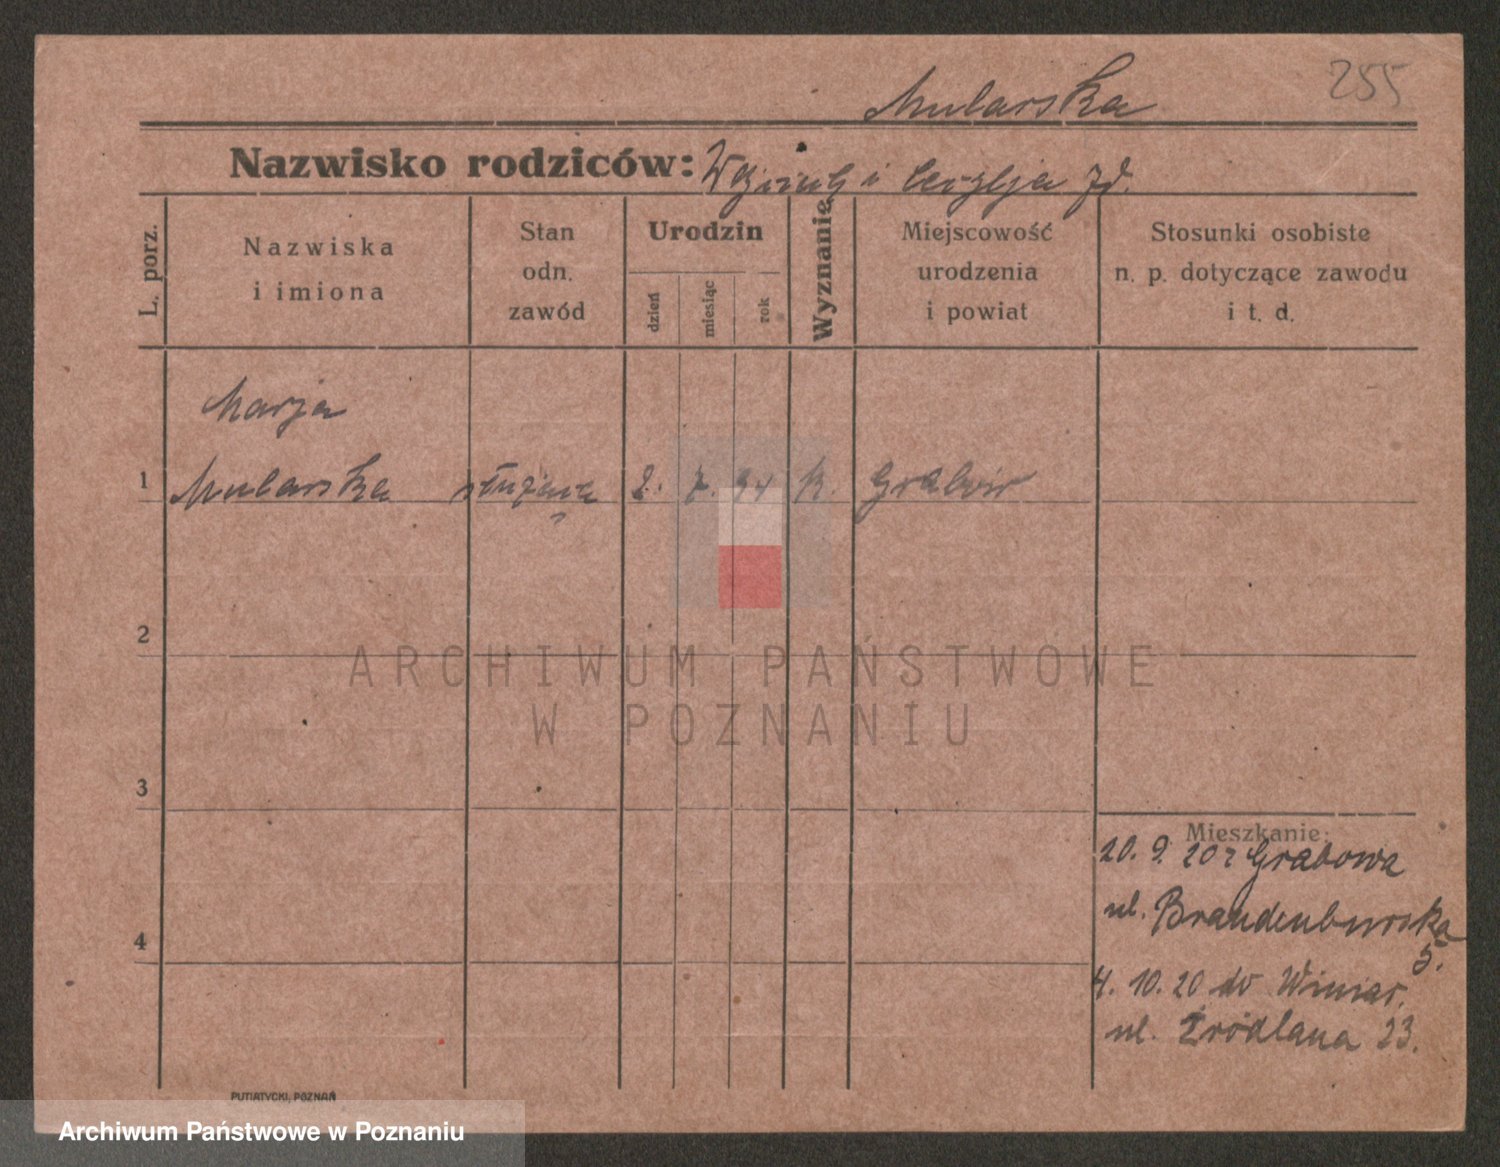 255
Mularska
Nazwisko rodziców: i zd.
L. porz.
Nazwiska
i imiona
Stan
odn.
zawód
Urodzin
dzień
miesiąc
rok
Wyznanie
Miejscowość
urodzenia
i powiat
Stosunki osobiste
n. p. dotyczące zawodu
i t. d.
Marja
1 Mularska służąca 2. 7. 94 k. Grabów
2
ARCHIWUM PAŃSTWOWE
W POZNANIU
3
Mieszkanie:
20. 9. 20 z Grabowa
ul. Brandenburska
5.
4
4. 10. 20 do Winiar.
ul. Źródlana 23.
PUTIATYCKI, POZNAŃ
Archiwum Państwowe w Poznaniu